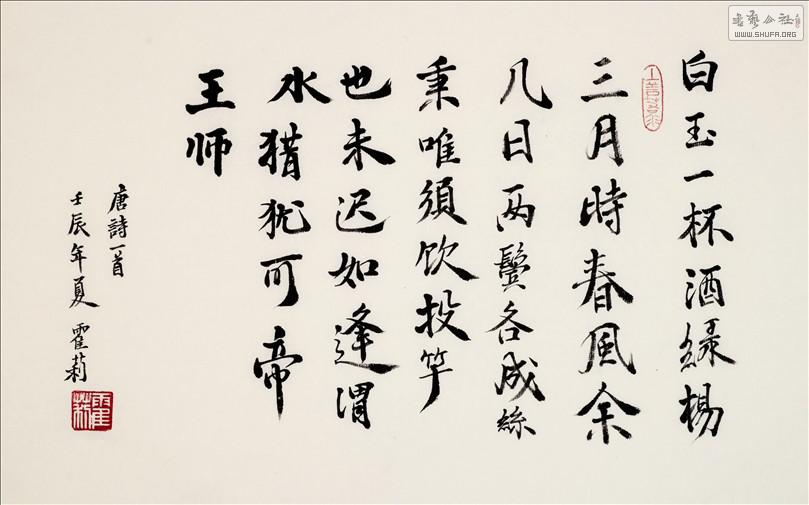 白玉一杯酒緑楊
三月時春風余
几日两鬓各成絲
秉唯須饮投竿
也未迟如逢渭
水猎犹可帝
王师
唐詩一首
壬辰年夏 霍莉
霍莉
WWW.SHUFA.ORG